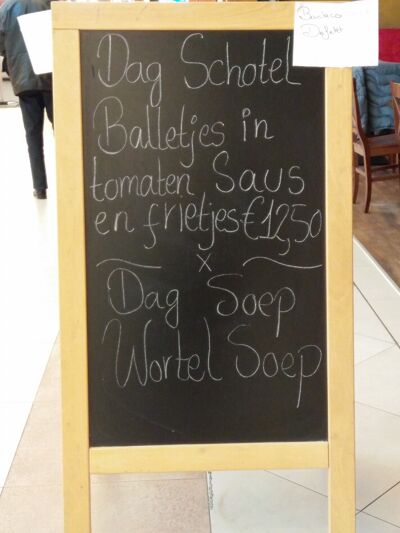 Dag Schotel
Balletjes in
tomaten Saus
en frietjes €12,50
x
Dag Soep
Wortel Soep